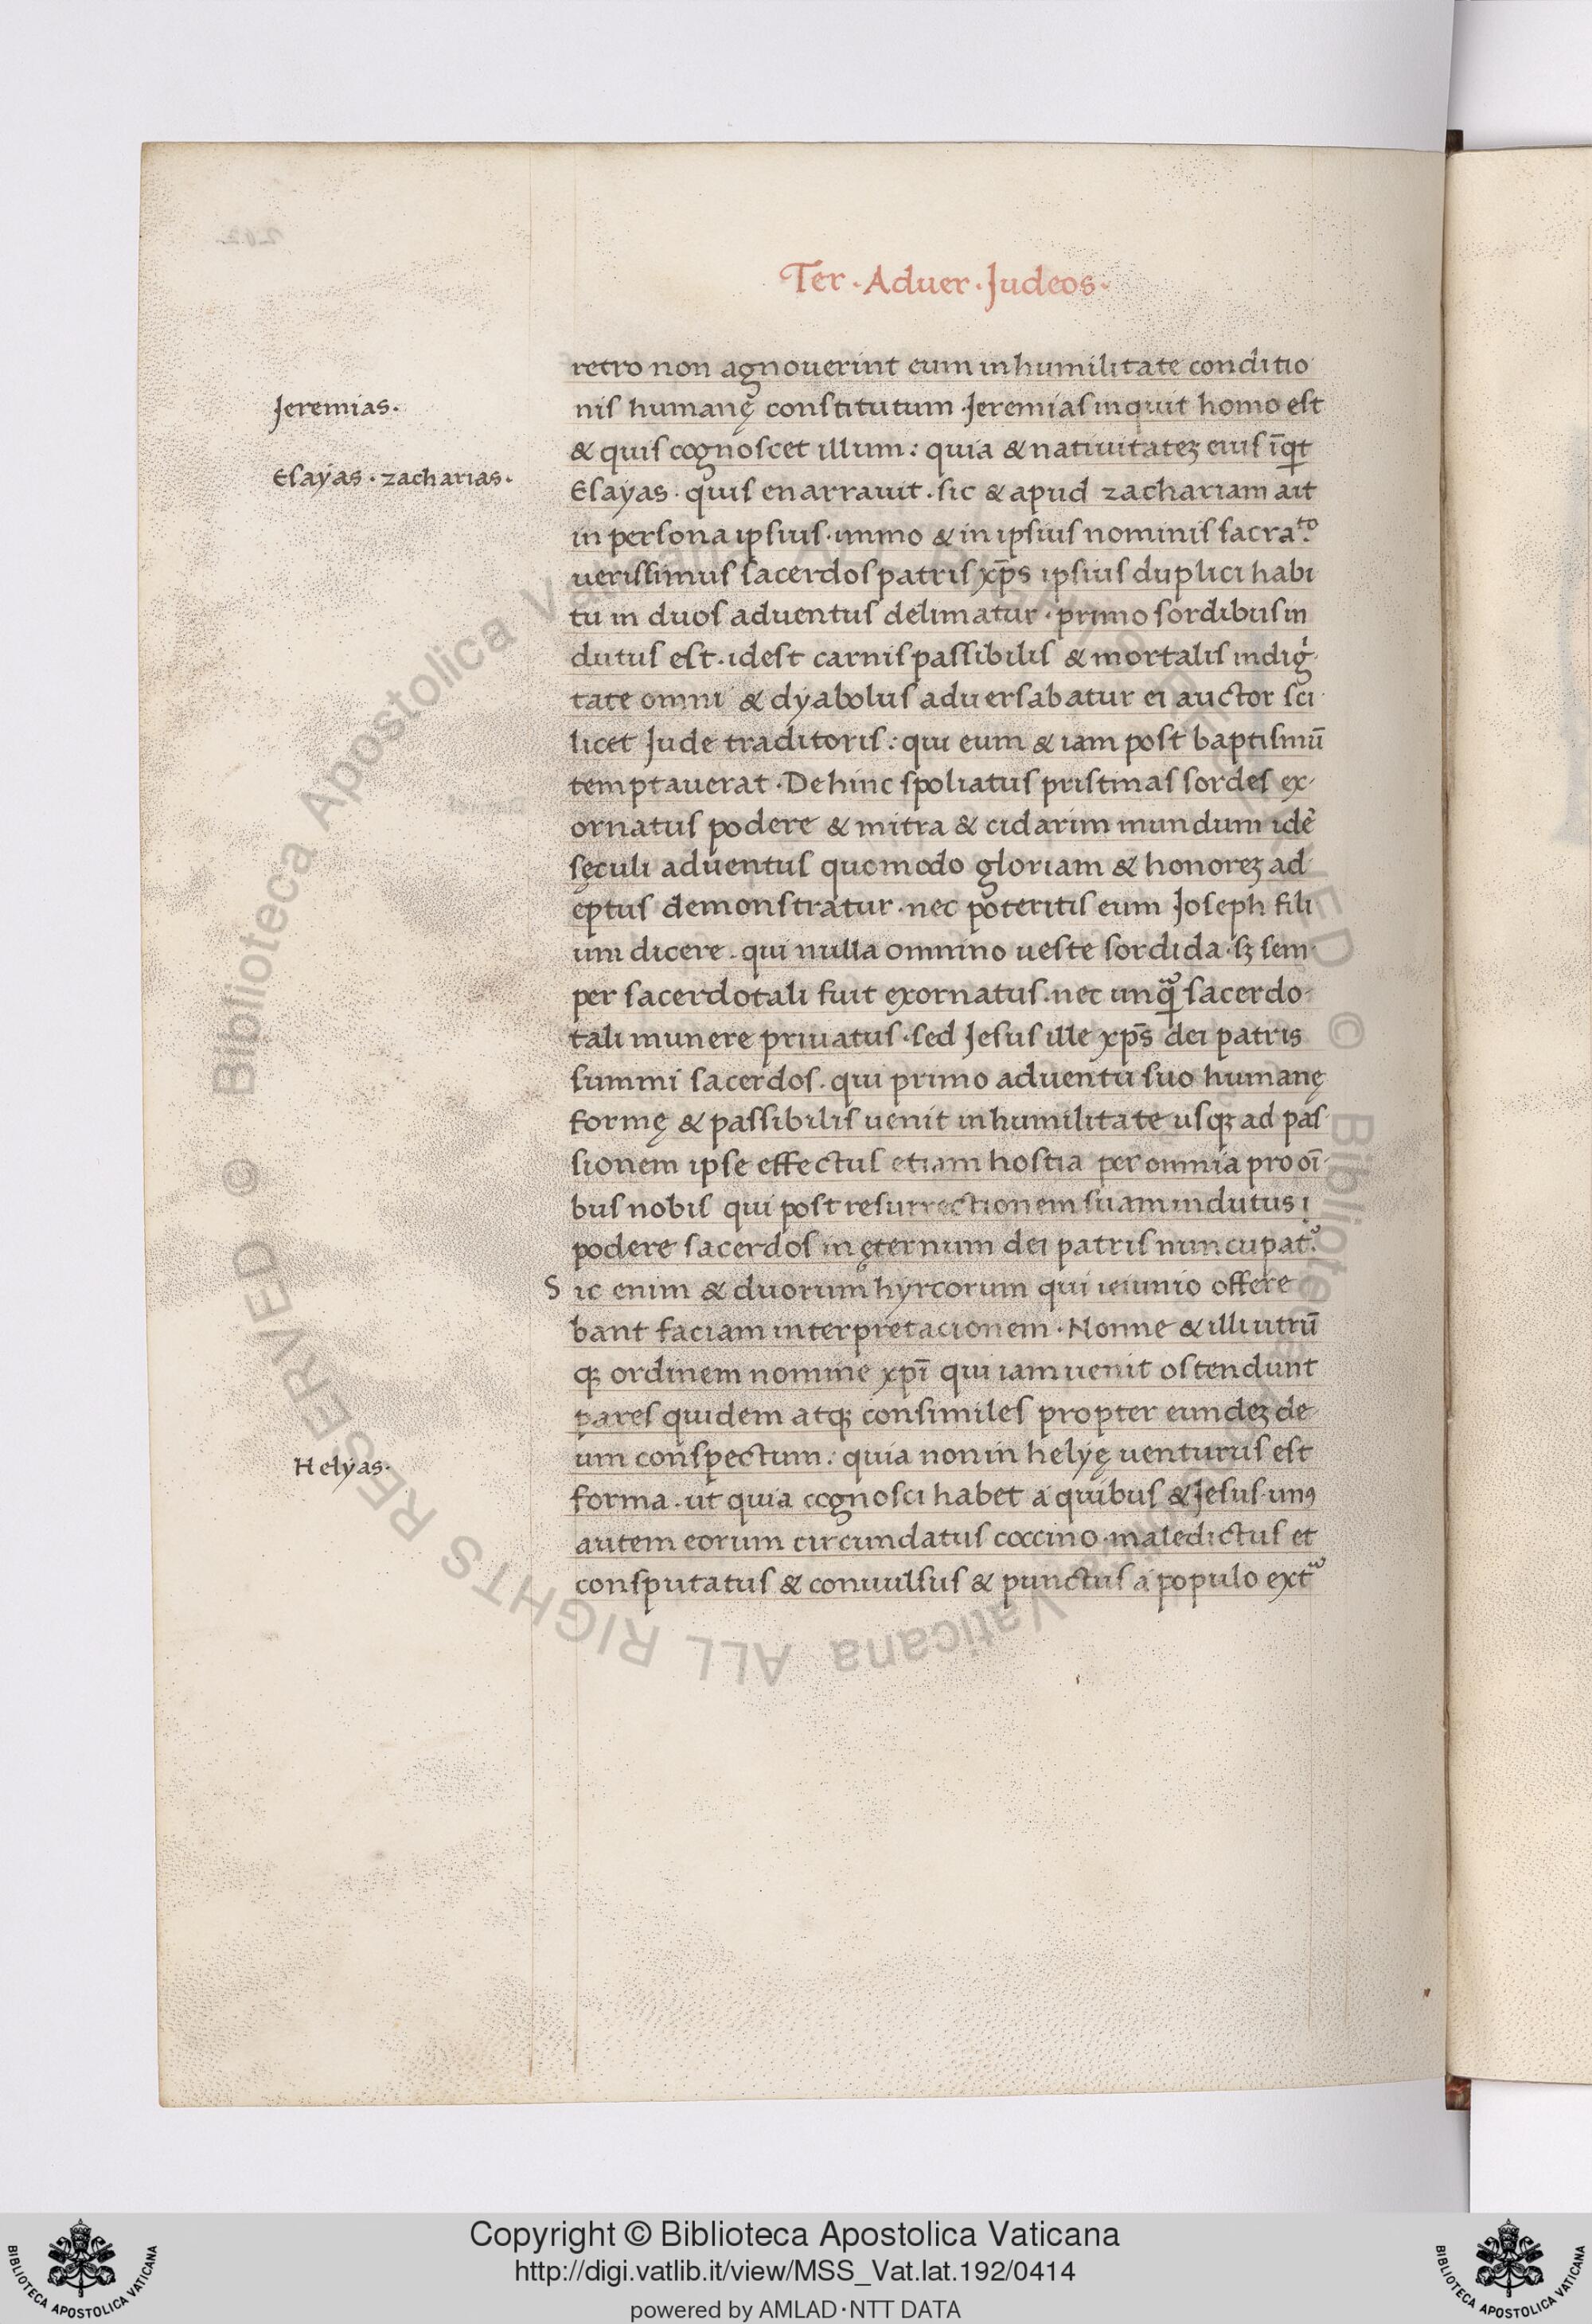 Ter · Aduer · Judeos ·
retro non agnouerint eum in humilitate conditio
Jeremias ·
nis humanę constitutum · Jeremias inquit homo est
& quis cognoscet illum : quia & natiuitateꝫ eius īqt
Esayas · zacharias ·
Esayas · quis enarrauit · sic & apud zachariam ait
in persona ipsius · immo & in ipsius nominis sacraᵗᵒ·
uerissimus sacerdos patris xp̄s ipsius duplici habi
tu in duos aduentus delimatur · primo sordibus in
dutus est · idest carnis passibilis & mortalis indigͥ
tate omni & dyabolus aduersabatur ei auctor sci
licet Jude traditoris : qui eum & iam post baptismū
temptauerat · Dehinc spoliatus pristinas sordes ex
ornatus podere & mitra & cidarim mundum idē
sęculi aduentus quomodo gloriam & honoreꝫ ad
eptus demonstratur · nec poteritis eum Joseph fili
um dicere · qui nulla omnino ueste sordida · sꝫ sem
per sacerdotali fuit exornatus · nec unqᷓ sacerdo
tali munere priuatus · sed Jesus ille xp̄s dei patris
summi sacerdos · qui primo aduentu suo humanę
formę & passibilis uenit in humilitate usqꝫ ad pas
sionem ipse effectus etiam hostia per omnia pro oī
bus nobis qui post resurrectionem suam indutus ı
podere sacerdos in ęternum dei patris nuncupat᷑ ·
Sic enim & duorum hyrcorum qui ieiunio offere
bant faciam interpretacionem · Nonne & illi utrū
qꝫ ordinem nomine xpī qui iam uenit ostendunt
pares quidem atqꝫ consimiles propter eundeꝫ de
um conspectum : quia non in helyę uenturus est
Helyas ·
forma · ut quia cognosci habet a quibus & Jesus · unꝰ
autem eorum circundatus coccino · maledictus et
consputatus & conuulsus & punctus a populo extᷓ
© Biblioteca Apostolica Vaticana ALL RIGHTS RESERVED
Copyright © Biblioteca Apostolica Vaticana
http://digi.vatlib.it/view/MSS_Vat.lat.192/0414
powered by AMLAD·NTT DATA
BIBLIOTECA APOSTOLICA VATICANA
BIBLIOTECA APOSTOLICA VATICANA